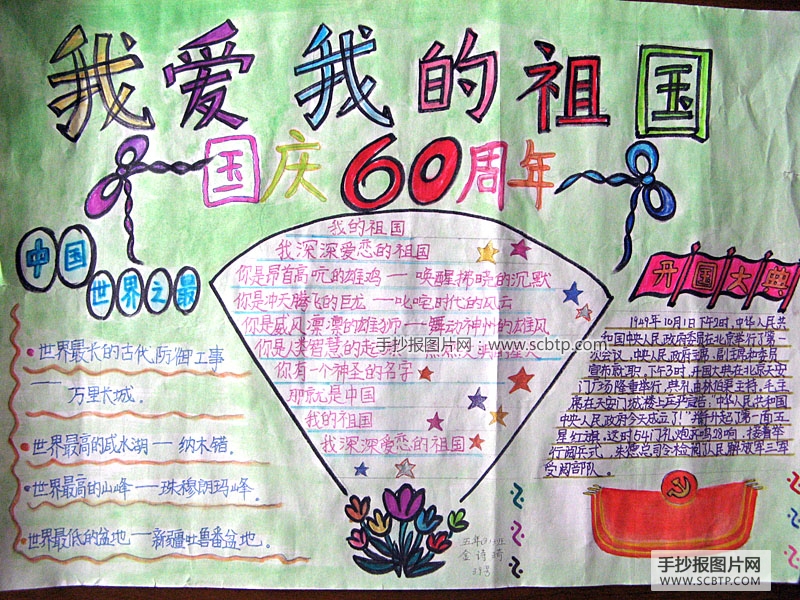 我爱我的祖国
国庆60周年
中国
世界之最
世界最长的古代防御工事
——万里长城.
世界最高的咸水湖——纳木错.
世界最高的山峰——珠穆朗玛峰.
世界最低的盆地——新疆吐鲁番盆地.
我的祖国
我深深爱恋的祖国
你是昂首高吭的雄鸡——唤醒拂晓的沉默
你是冲天腾飞的巨龙——叱咤时代的风云
你是威风凛凛的雄狮——舞动神州的雄风
你是人类智慧的起
手抄报图片网:www.scbtp.com
你有一个神圣的名字
那就是中国
我的祖国
我深深爱恋的祖国
开国大典
1949年10月1日下午2时,中华人民共
和国中央人民政府委员在北京举行了第一
次会议,中央人民政府主席、副主席和委员
宣布就职。下午3时,开国大典在北京天安
门广场隆重举行,典礼由林伯渠主持,毛主
席在天安门城楼上庄严宣告:"中华人民共和国
中央人民政府今天成立了!"并升起了第一面五
星红旗,这时54门礼炮齐鸣28响,接着举
行阅兵式,朱德总司令检阅人民解放军三军
受阅部队。
五年(1)班
金诗琦
39号
手抄报图片网
WWW.SCBTP.COM